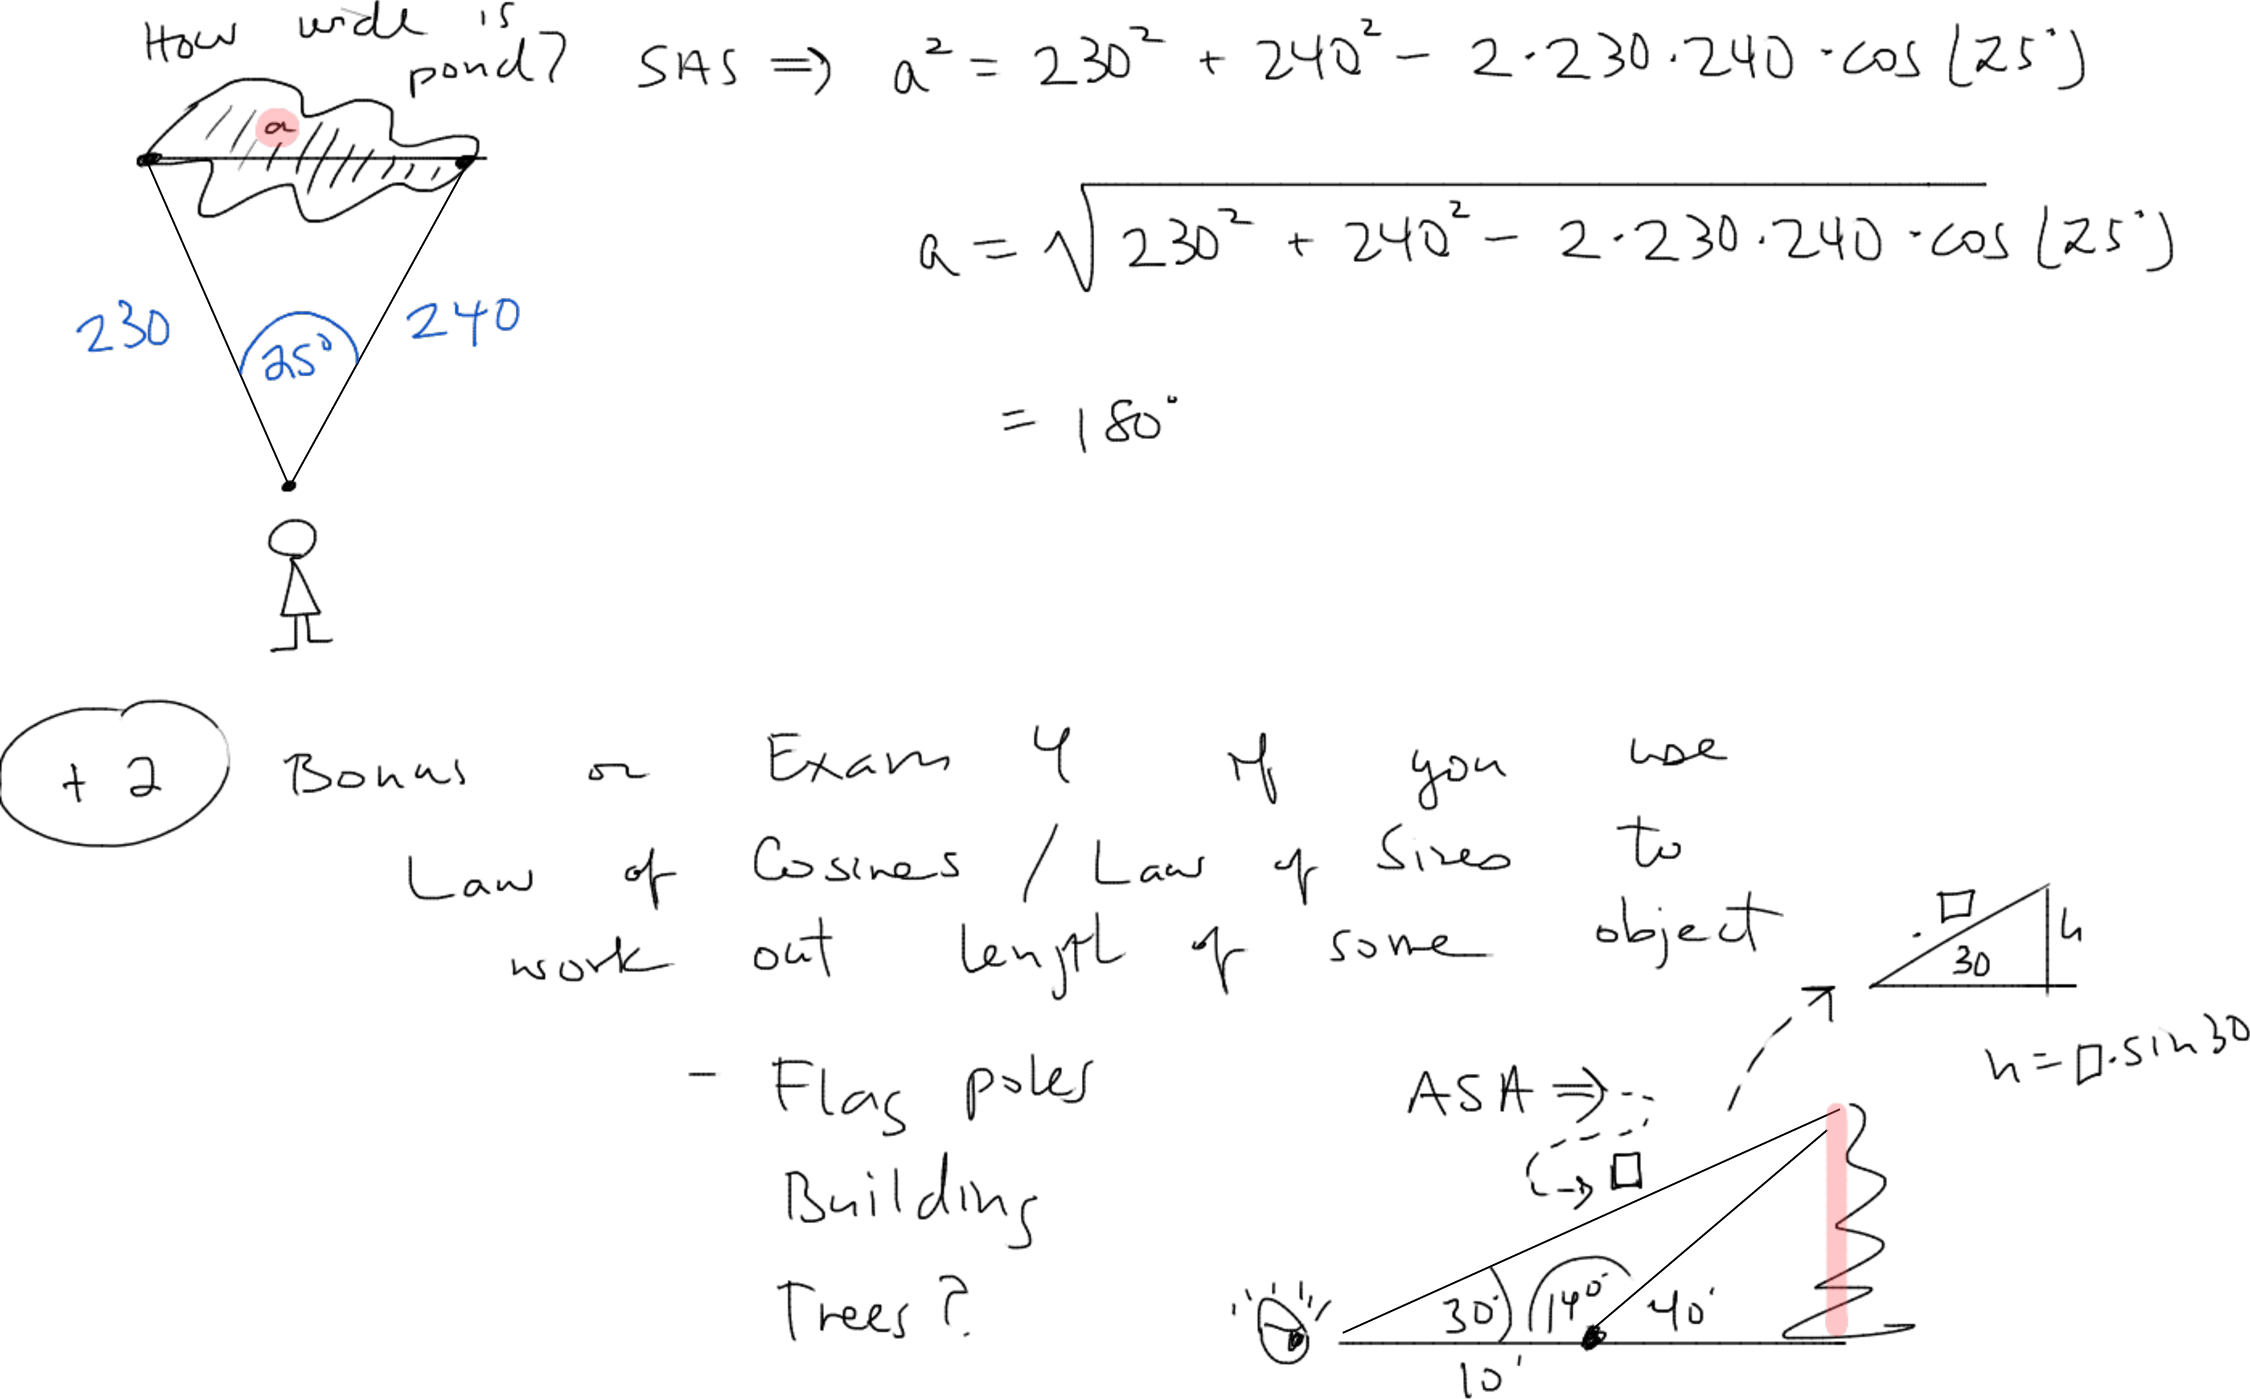 How wide is
pond?
SAS ⇒ a² = 230² + 240² - 2·230·240·cos(25°)
a
a = √230² + 240² - 2·230·240·cos(25°)
230
25°
240
= 180°
+2
Bonus on Exam 4 if you use
Law of Cosines / Law of Sines to
work out length of some object
□
30
h
h = □·sin 30
- Flag poles
ASA ⇒
→ □
Building
Trees?
30°
140°
40°
10'